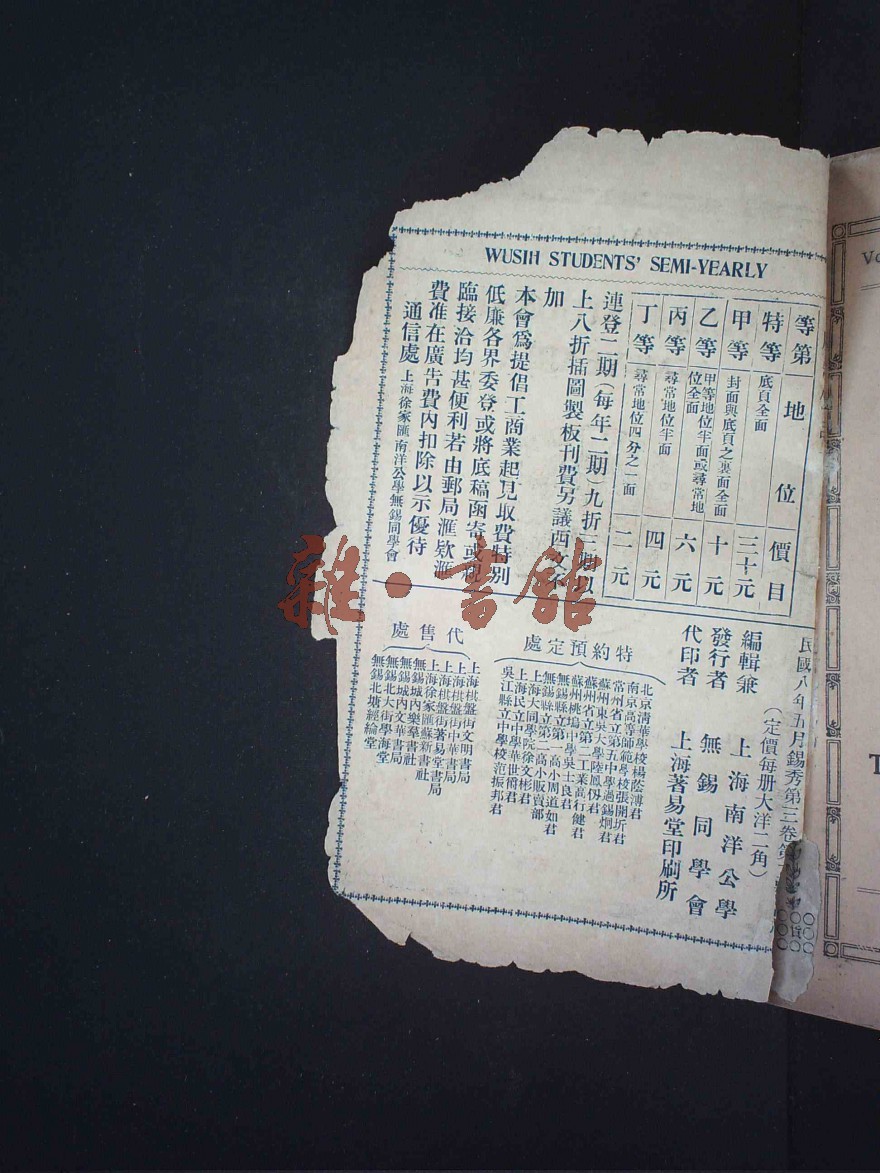 WUSIH STUDENTS' SEMI-YEARLY
等第 地位 價目
特等 底頁全面 三十元
甲等 封面與底頁之裏面全面 十元
乙等 甲等地位半面或尋常地位全面 六元
丙等 尋常地位半面 四元
丁等 尋常地位四分之一面 二元
連登二期(每年二期)九折三期以
上八折插圖製板刊費另議西文不
加
本會爲提倡工商業起見取費特別
低廉各界委登或將底稿函寄或
臨接洽均甚便利若由郵局滙欵滙
費准在廣告費內扣除以示優待
通信處 上海徐家匯南洋公學無錫同學會
民國八年五月錫秀第三卷第
(定價每册大洋二角)
編輯兼
發行者 上海南洋公學
無錫同學會
代印者 上海著易堂印刷所
特約預定處
北京清華學校楊蔭溥君
南京高等師範學校張開圻君
常州省立第五中學過錫炯君
蘇州東吳大學陸鳳仭君
蘇州省立第二工業高行健君
蘇州桃塢中學吳士良君
無錫縣立第一高小周道如君
無錫縣立第二高小販賣部
上海大同學院徐文彬君
上海民立中學華世裔君
吳江縣立中學校范振邦君
代售處
上海棋盤街文明書局
上海棋盤街中華書局
上海棋盤街著易堂書局
上海徐家匯蘇新書社
無錫城內樂羣書社
無錫城內文華書局
無錫北大街學海堂
無錫北塘經綸堂
雜·書館